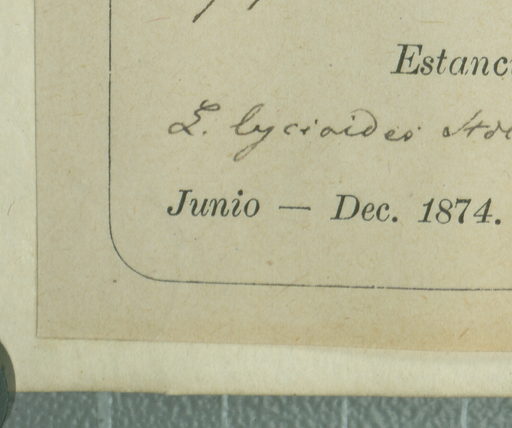 Estanc
L. lycioides
Junio — Dec. 1874.